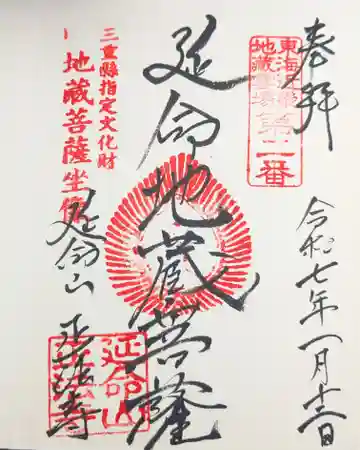 奉拝
東海道
地蔵霊場
第二番
令和七年一月十三日
延命地蔵菩薩
三重縣指定文化財
地蔵菩薩坐像
延命山
正法寺
延命山